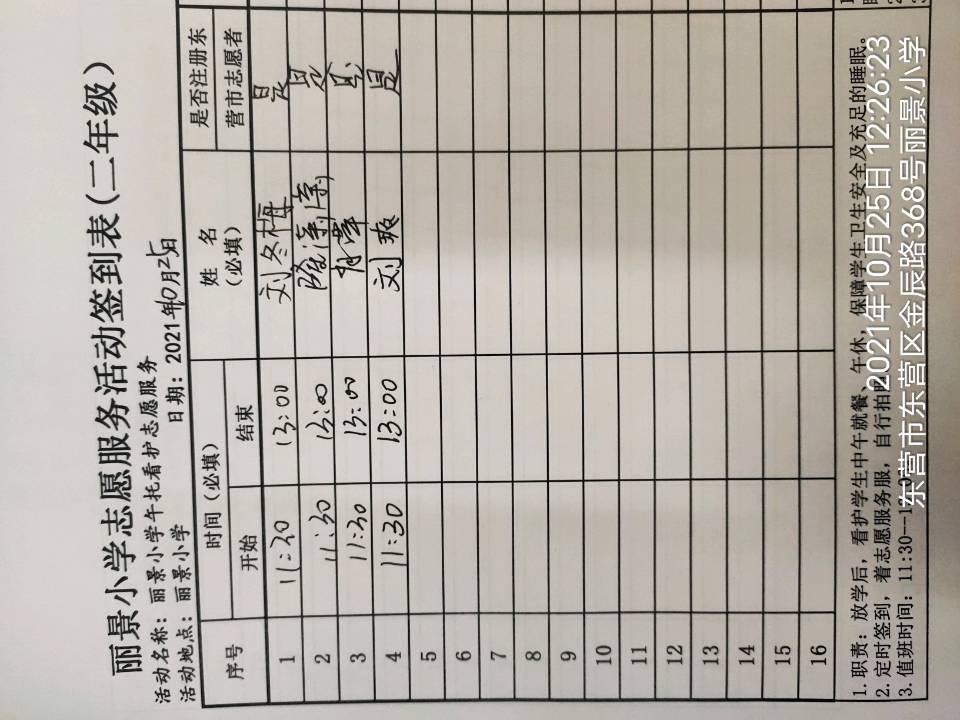 丽景小学志愿服务活动签到表(二年级)
活动名称：丽景小学午托看护志愿服务
活动地点：丽景小学 日期：2021年10月25日
序号 时间（必填） 姓名（必填） 是否注册东营市志愿者
开始 结束
1 11:30 13:00 刘冬梅 是
2 11:30 13:00 是
3 11:30 13:00 是
4 11:30 13:00 刘爽 是
5
6
7
8
9
10
11
12
13
14
15
16
1.职责：放学后，看护学生中午就餐、午休，保障学生卫生安全及充足的睡眠。
2.定时签到，着志愿服务服，自行拍
3.值班时间：11:30--1
2021年10月25日 12:26:23
东营市东营区金辰路368号丽景小学